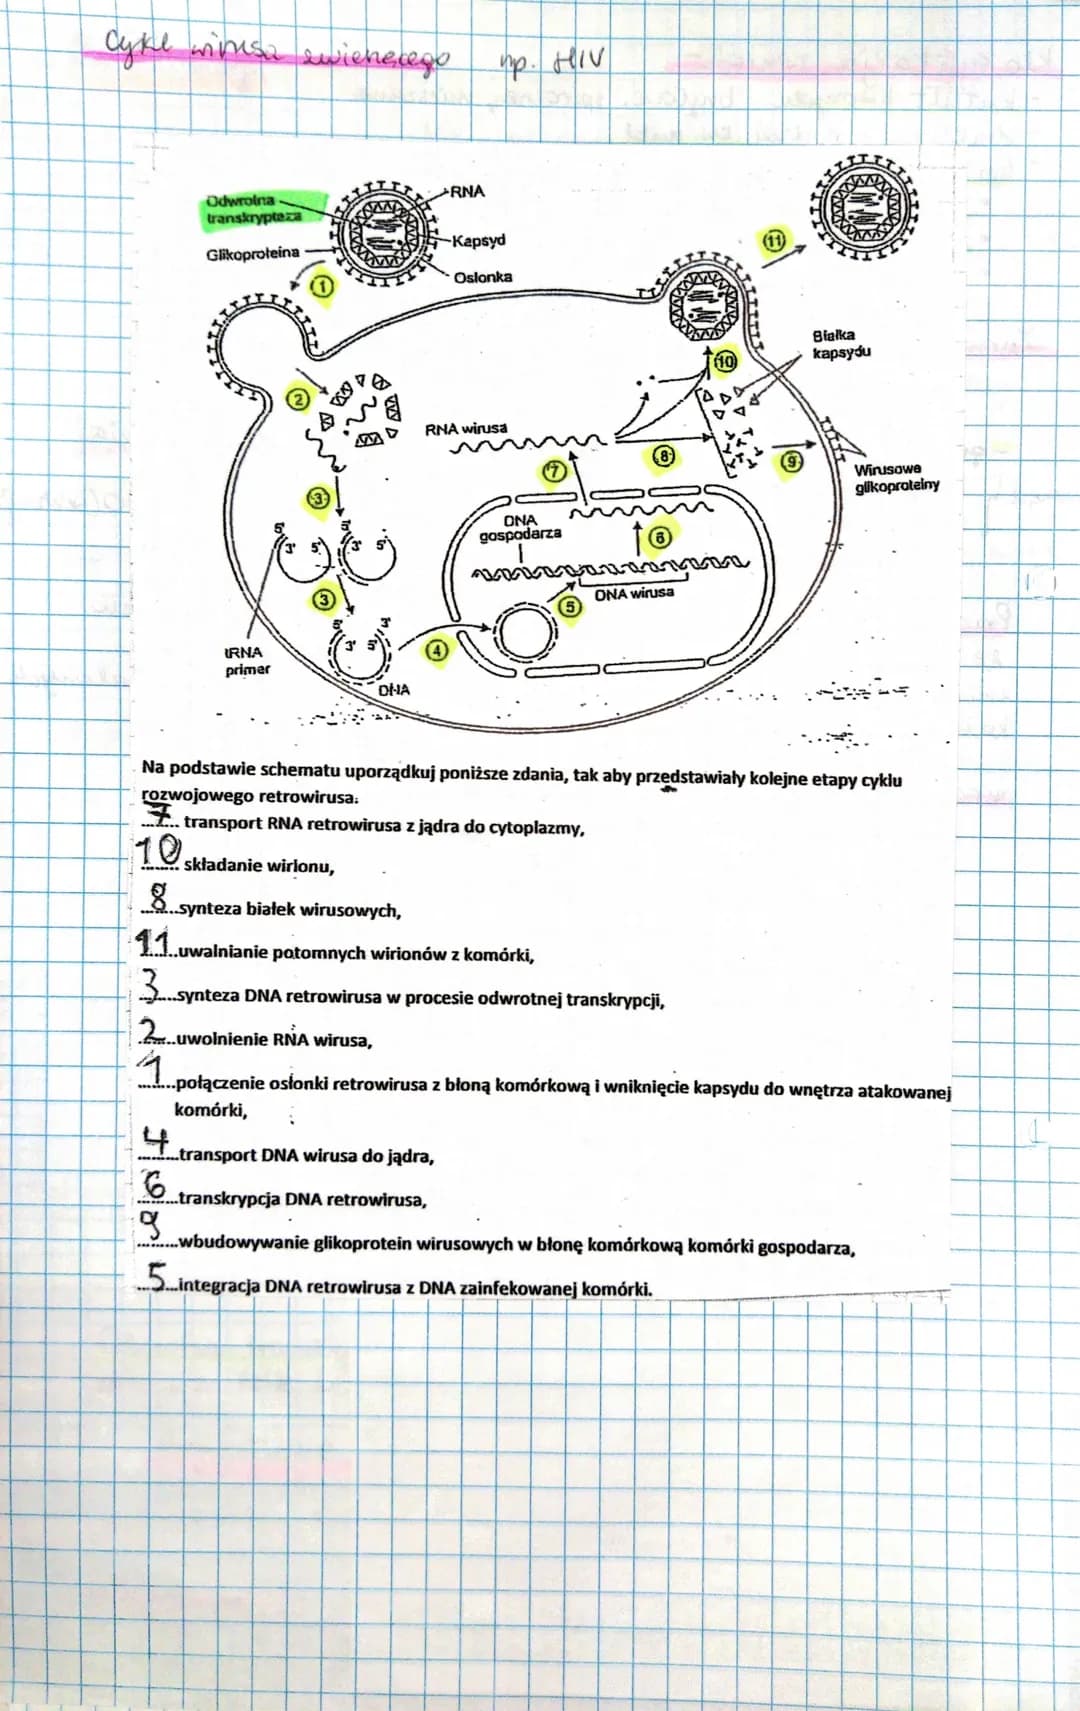 Cykl wirusa zwierzęcego np. HIV
Odwrotna
transkryptaza
RNA
Glikoproteina
Kapsyd
Osłonka
1
11
Białka
kapsydu
10
2
RNA wirusa
8
9
Wirusowe
glikoproteiny
7
3
DNA
gospodarza
6
5' 3' 5' 3' 3' 5'
DNA wirusa
5
3
5' 3' 5' 3'
4
tRNA
primer
DNA
Na podstawie schematu uporządkuj poniższe zdania, tak aby przedstawiały kolejne etapy cyklu
rozwojowego retrowirusa:
7 transport RNA retrowirusa z jądra do cytoplazmy,
10 składanie wirionu,
8 synteza białek wirusowych,
11 uwalnianie potomnych wirionów z komórki,
3 synteza DNA retrowirusa w procesie odwrotnej transkrypcji,
2 uwolnienie RNA wirusa,
1 połączenie osłonki retrowirusa z błoną komórkową i wniknięcie kapsydu do wnętrza atakowanej
komórki,
4 transport DNA wirusa do jądra,
6 transkrypcja DNA retrowirusa,
9 wbudowywanie glikoprotein wirusowych w błonę komórkową komórki gospodarza,
5 integracja DNA retrowirusa z DNA zainfekowanej komórki.